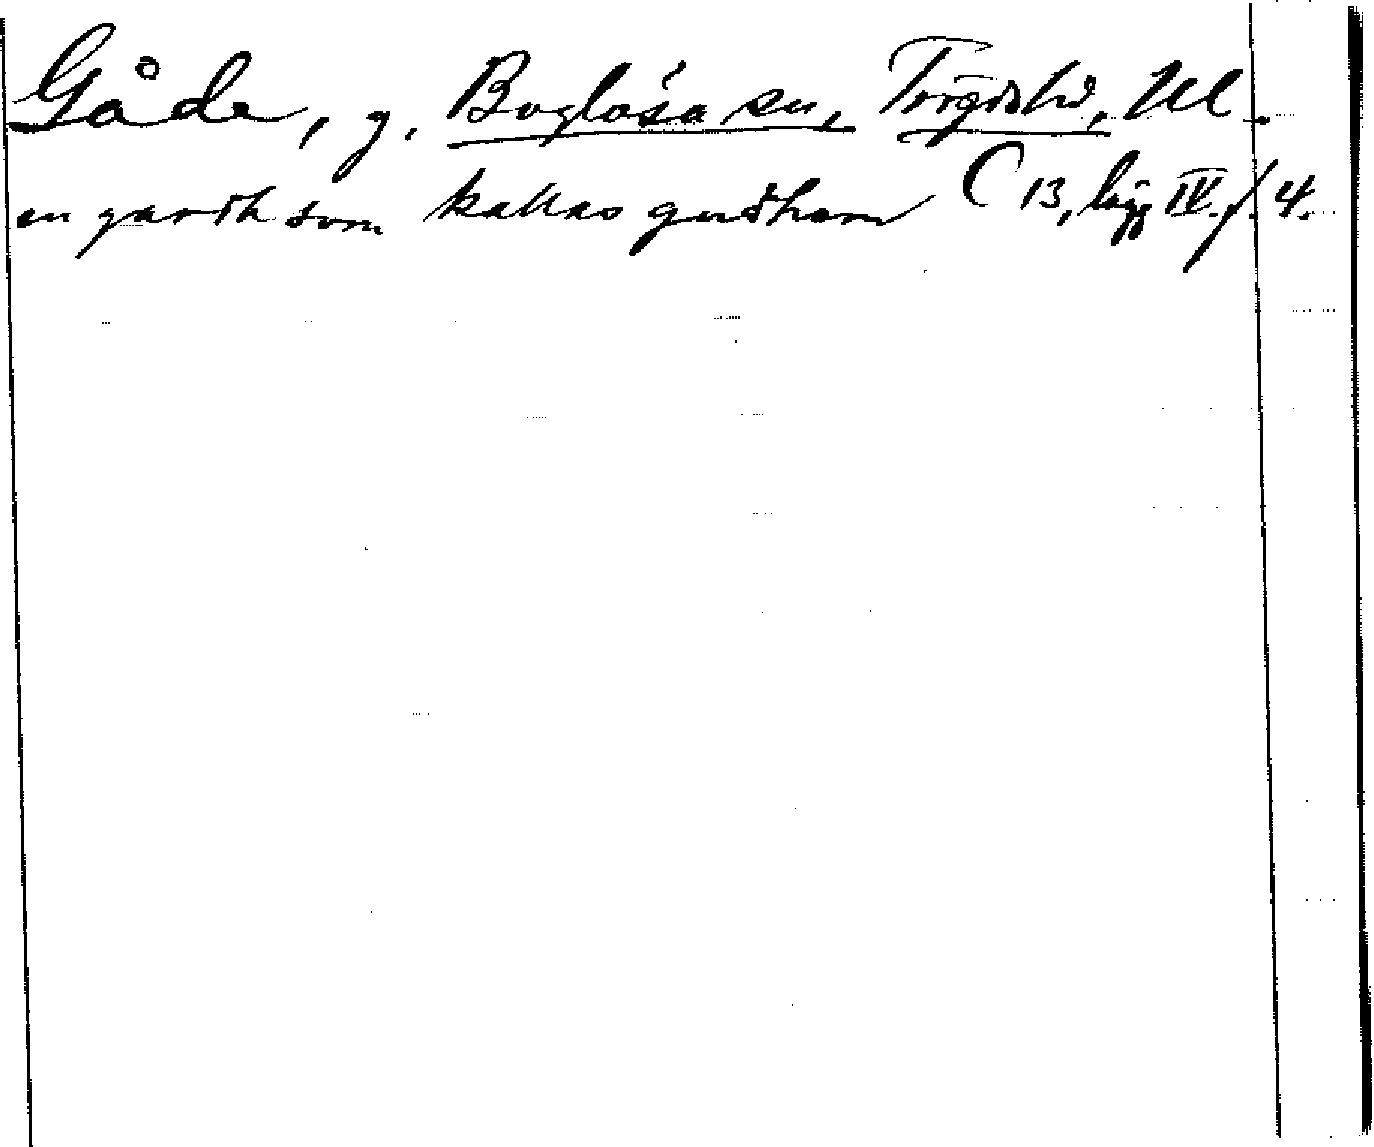 Gåde, g. Boglösa sn, Trögds hd, Upl.
en gardh som kallas gudham C 13, lägg IV, f. 4.